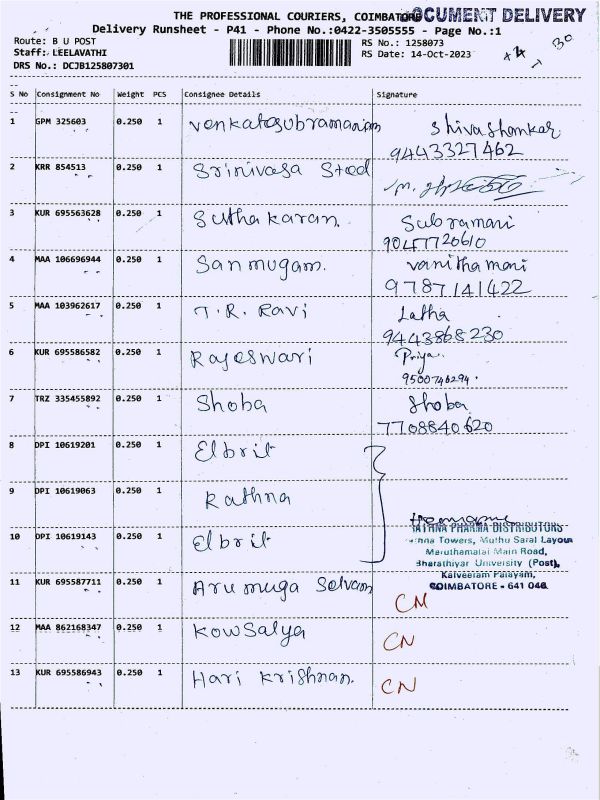 THE PROFESSIONAL COURIERS, COIMBATORE
DOCUMENT DELIVERY
Delivery Runsheet - P41 - Phone No.:0422-3505555 - Page No.:1
Route: B U POST
RS No.: 1258073
Staff: LEELAVATHI
RS Date: 14-Oct-2023
DRS No.: DCJB125807301
S No Consignment No Weight PCS Consignee Details Signature
1 GPM 325603 0.250 1 Venkatasubramaniam Shivashankar
9443327462
2 KRR 854513 0.250 1 Srinivasa Steel
3 KUR 695563628 0.250 1 Suthakaran. Subramani
9047720610
4 MAA 106696944 0.250 1 Sanmugam. Vanithamani
9787141422
5 MAA 103962617 0.250 1 T.R. Ravi Latha
9443868230
6 KUR 695586582 0.250 1 Rajeswari Priya.
9500746294.
7 TRZ 335455892 0.250 1 Shoba Shoba
7708840620
8 DPI 10619201 0.250 1 Elbrit
9 DPI 10619063 0.250 1 Rathna
RATHNA PHARMA DISTRIBUTORS
10 DPI 10619143 0.250 1 Elbrit
Rathna Towers, Muthu Saral Layout
Maruthamalai Main Road,
Bharathiyar University (Post),
Kalveeram Palayam,
COIMBATORE - 641 046.
11 KUR 695587711 0.250 1 Arumuga Selvam CN
12 MAA 862168347 0.250 1 Kowsalya CN
13 KUR 695586943 0.250 1 Hari Krishnan. CN